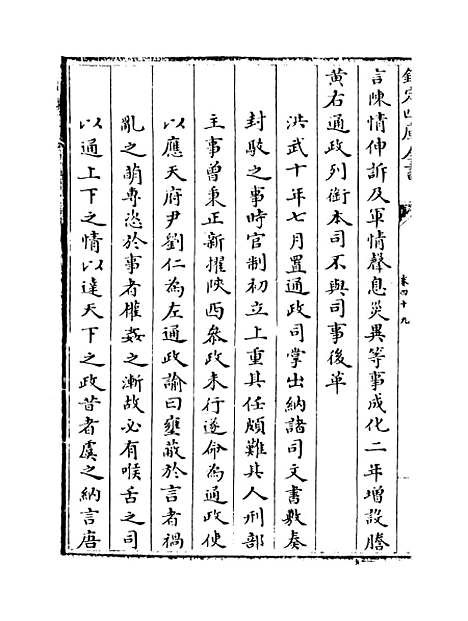 欽定四庫全書
卷四十九
言陳情伸訴及軍情聲息災異等事成化二年增設謄
黃右通政列銜本司不與司事後革
洪武十年七月置通政司掌出納諸司文書敷奏
封駮之事時官制初立上重其任頗難其人刑部
主事曾秉正新擢陜西參政未行遂命為通政使
以應天府尹劉仁為左通政諭曰壅蔽於言者禍
亂之萌專恣於事者權姦之漸故必有喉舌之司
以通上下之情以達天下之政昔者虞之納言唐